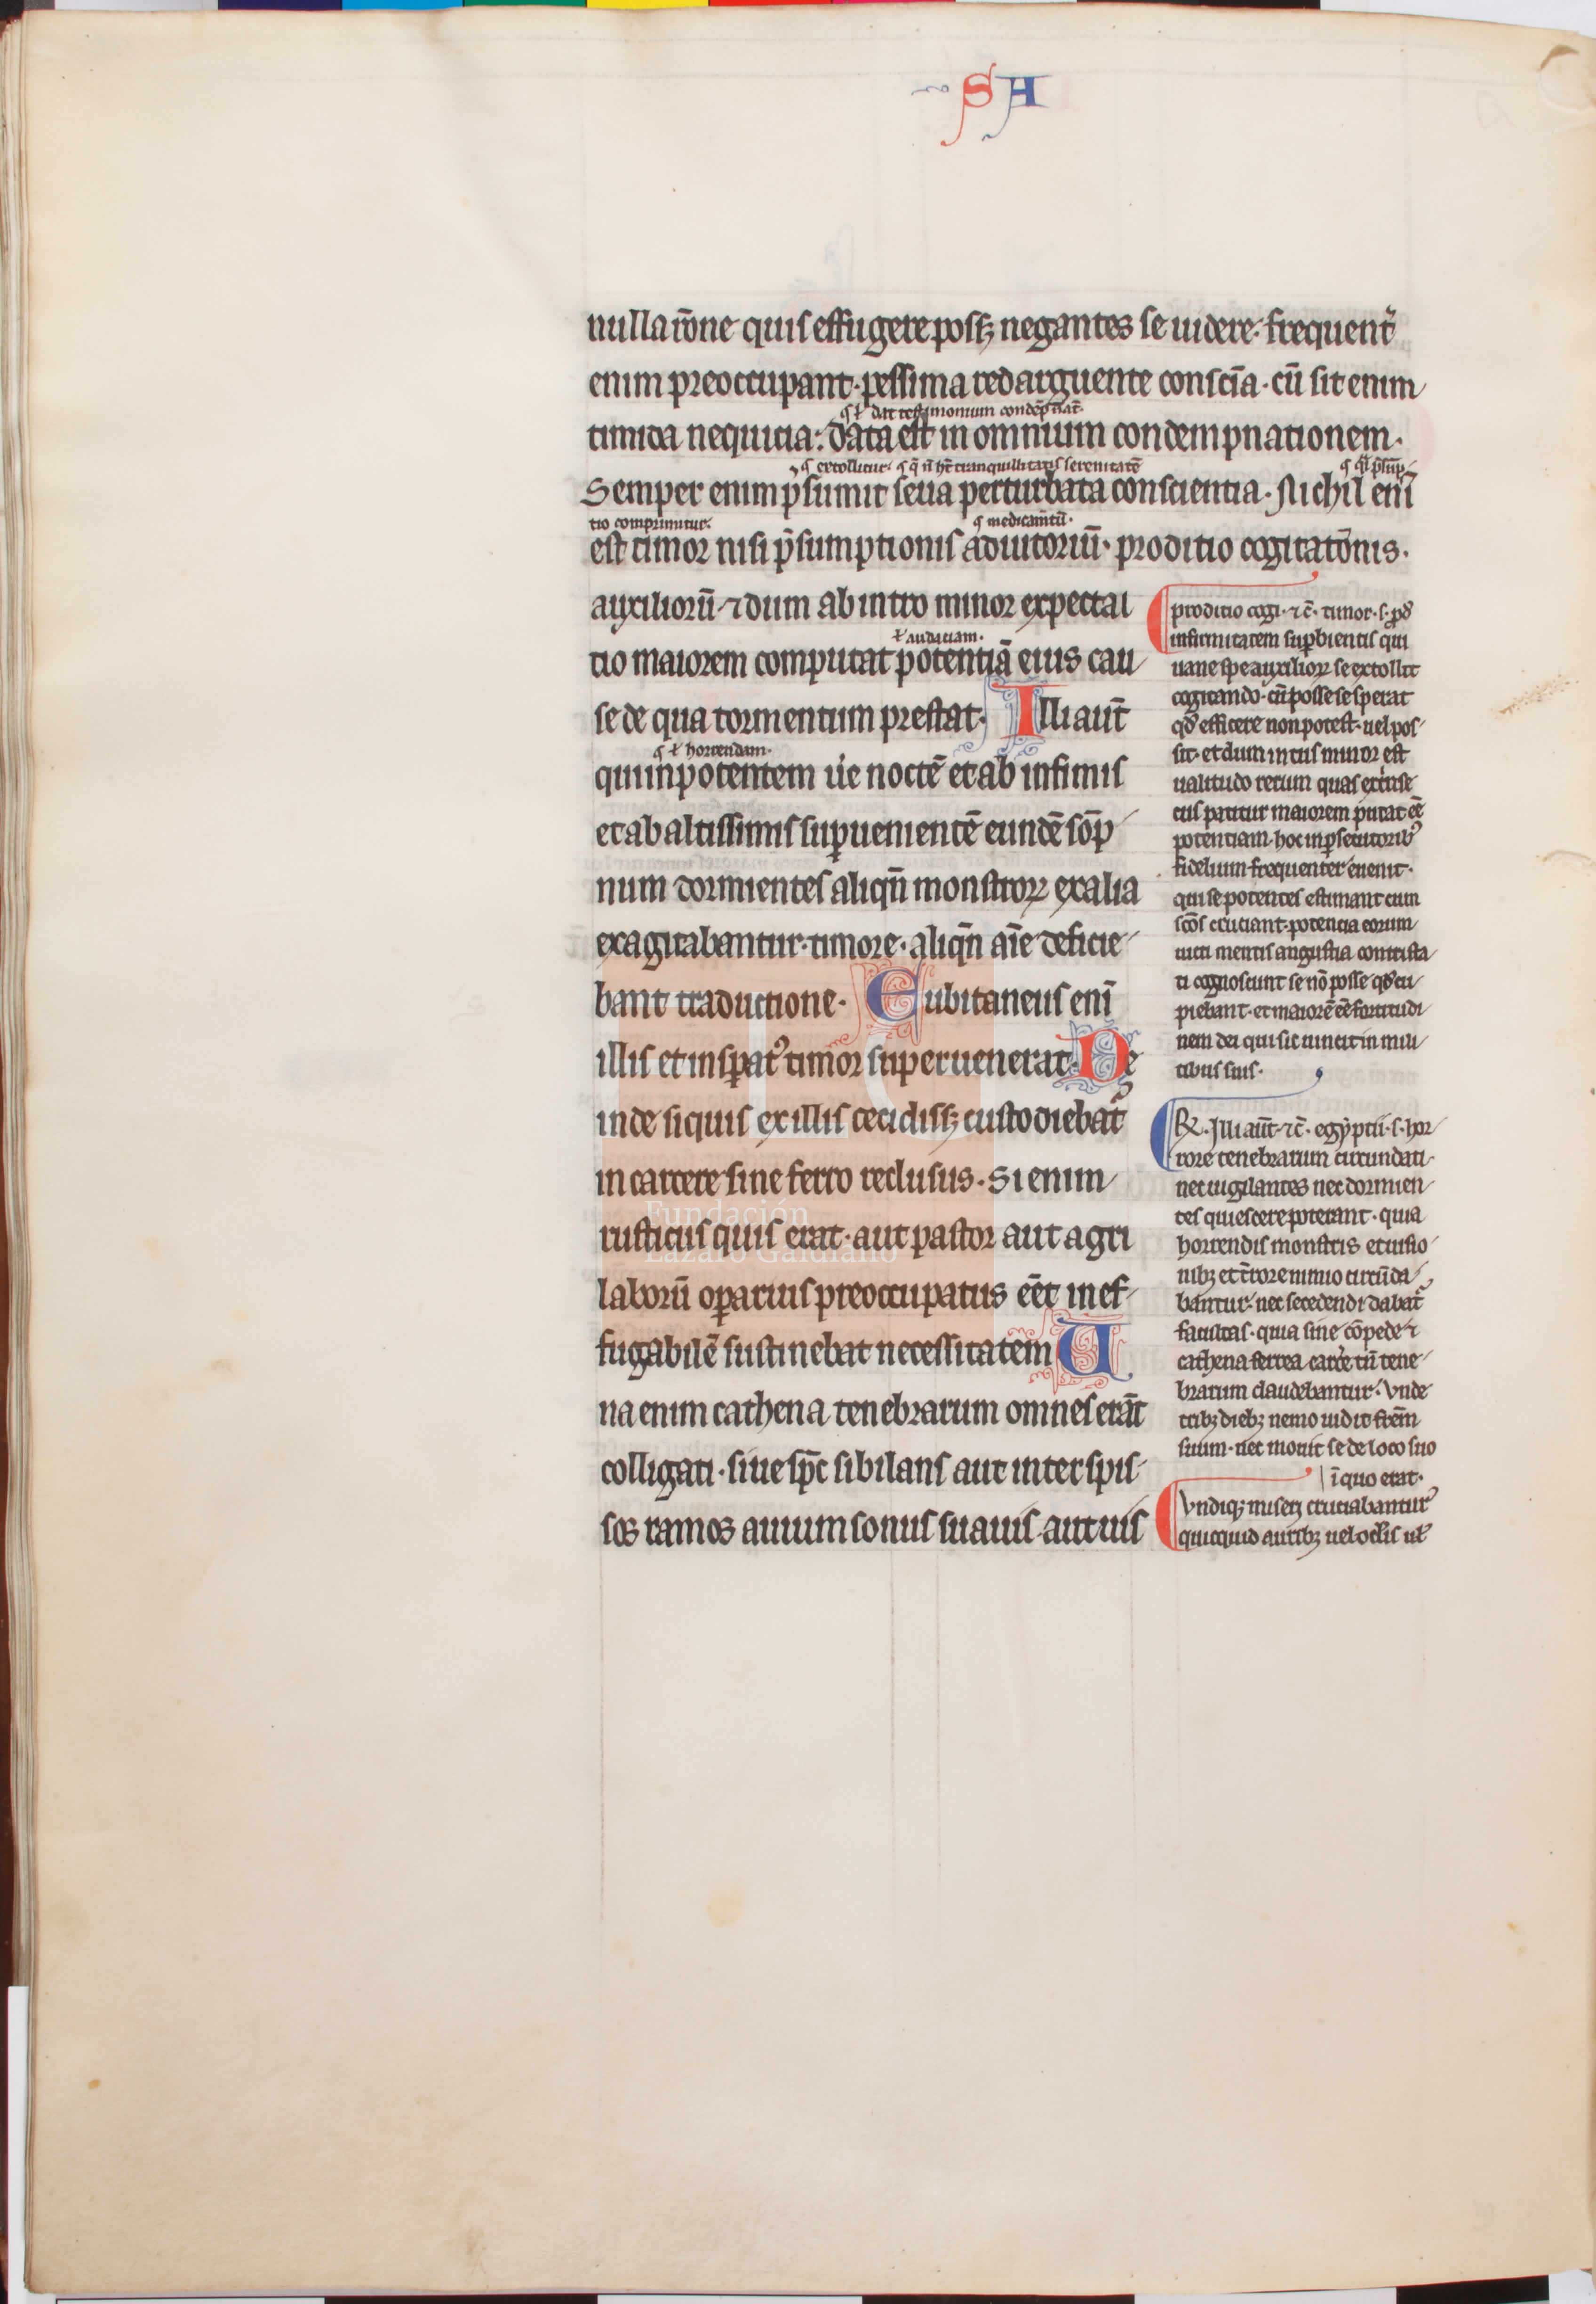 SA
nulla rōne quis effugere possꝫ negantes se uidere· frequent᷑
enim preoccupant· pessima redarguente consciā· cū sit enim
ł dat testimonium condēpnat᷑·
timida nequicia: data est in omnium condempnationem·
extollitur· q̄ ñ ht̄ tranquillitatis serenitatē
Semper enim p̄sumit seua perturbata conscientia· Nichil enī
tio comprimitur· medicam̄tū·
est timor nisi p̄sumptionis adiutoriū· proditio cogitatōnis·
auxiliorū ⁊ dum ab intro minor expectai
ł audaciam·
tio maiorem computat potentiā eius cau
se de qua tormentum prestat· Illi aut̄
ł horrendam·
qui inpotentem ue noctē et ab infimis
et ab altissimis suꝑuenientē eundē sōp
num dormientes aliqn̄ monstroꝝ exalia
exagitabantur· timore· aliqn̄ aīe deficie
bant traductione· Subitaneus enī
illis et insꝑat᷒ timor superuenerat· De
inde siquis ex illis cecidissꝫ custodiebat᷑
in carcere sine ferro reclusus· Si enim
rusticus quis erat· aut pastor aut agri
laborū oꝑarius preoccupatus eēt inef
fugabilē sustinebat necessitatem U
na enim cathena tenebrarum omnes erāt
colligati· siue sp̄c sibilans aut inter spis
sos ramos auium sonus suauis· aut uis
proditio cogi· ⁊ c̄· timor· s· ꝓd᷒
infirmitatem suꝑbientis qui
uane spe auxilioꝝ se extollit
cogitando· cū posse se sperat
qđ efficere non potest· uel pos
sit· et dum intus minor est
ualitudo rerum quas ext᷑nse
cus patitur maiorem putat eē
potentiam· hoc in ꝑsecutorib᷒
fidelium frequenter euenit·
qui se potentes estimant cum
scōs cruciant· potencia eorum
uicti mentis angustia contrista
ti cognoscunt se nō posse qđ cu
piebant· et maiorē eē fortitudi
nem dei qui sic uincit in mili
tibus suis·
R· Illi aūt ⁊ c̄· egyptii· s· hor
rore tenebrarum circundati·
nec uigilantes nec dormien
tes quiescere poterant· quia
horrendis monstris et uisio
nibꝫ et t᷑rore nimio circūda
bantur· nec secedendi dabat᷑
facultas· quia sine cōpede ⁊
cathena ferrea carc᷑e tn̄ tene
brarum claudebantur· Vnde
tribꝫ diebꝫ nemo uidit frēm
suum· nec mouit se de loco suo
ī quo erat·
Vndiqꝫ miseri cruciabantur᷒
quicquid auribꝫ uel oclis ul᷑